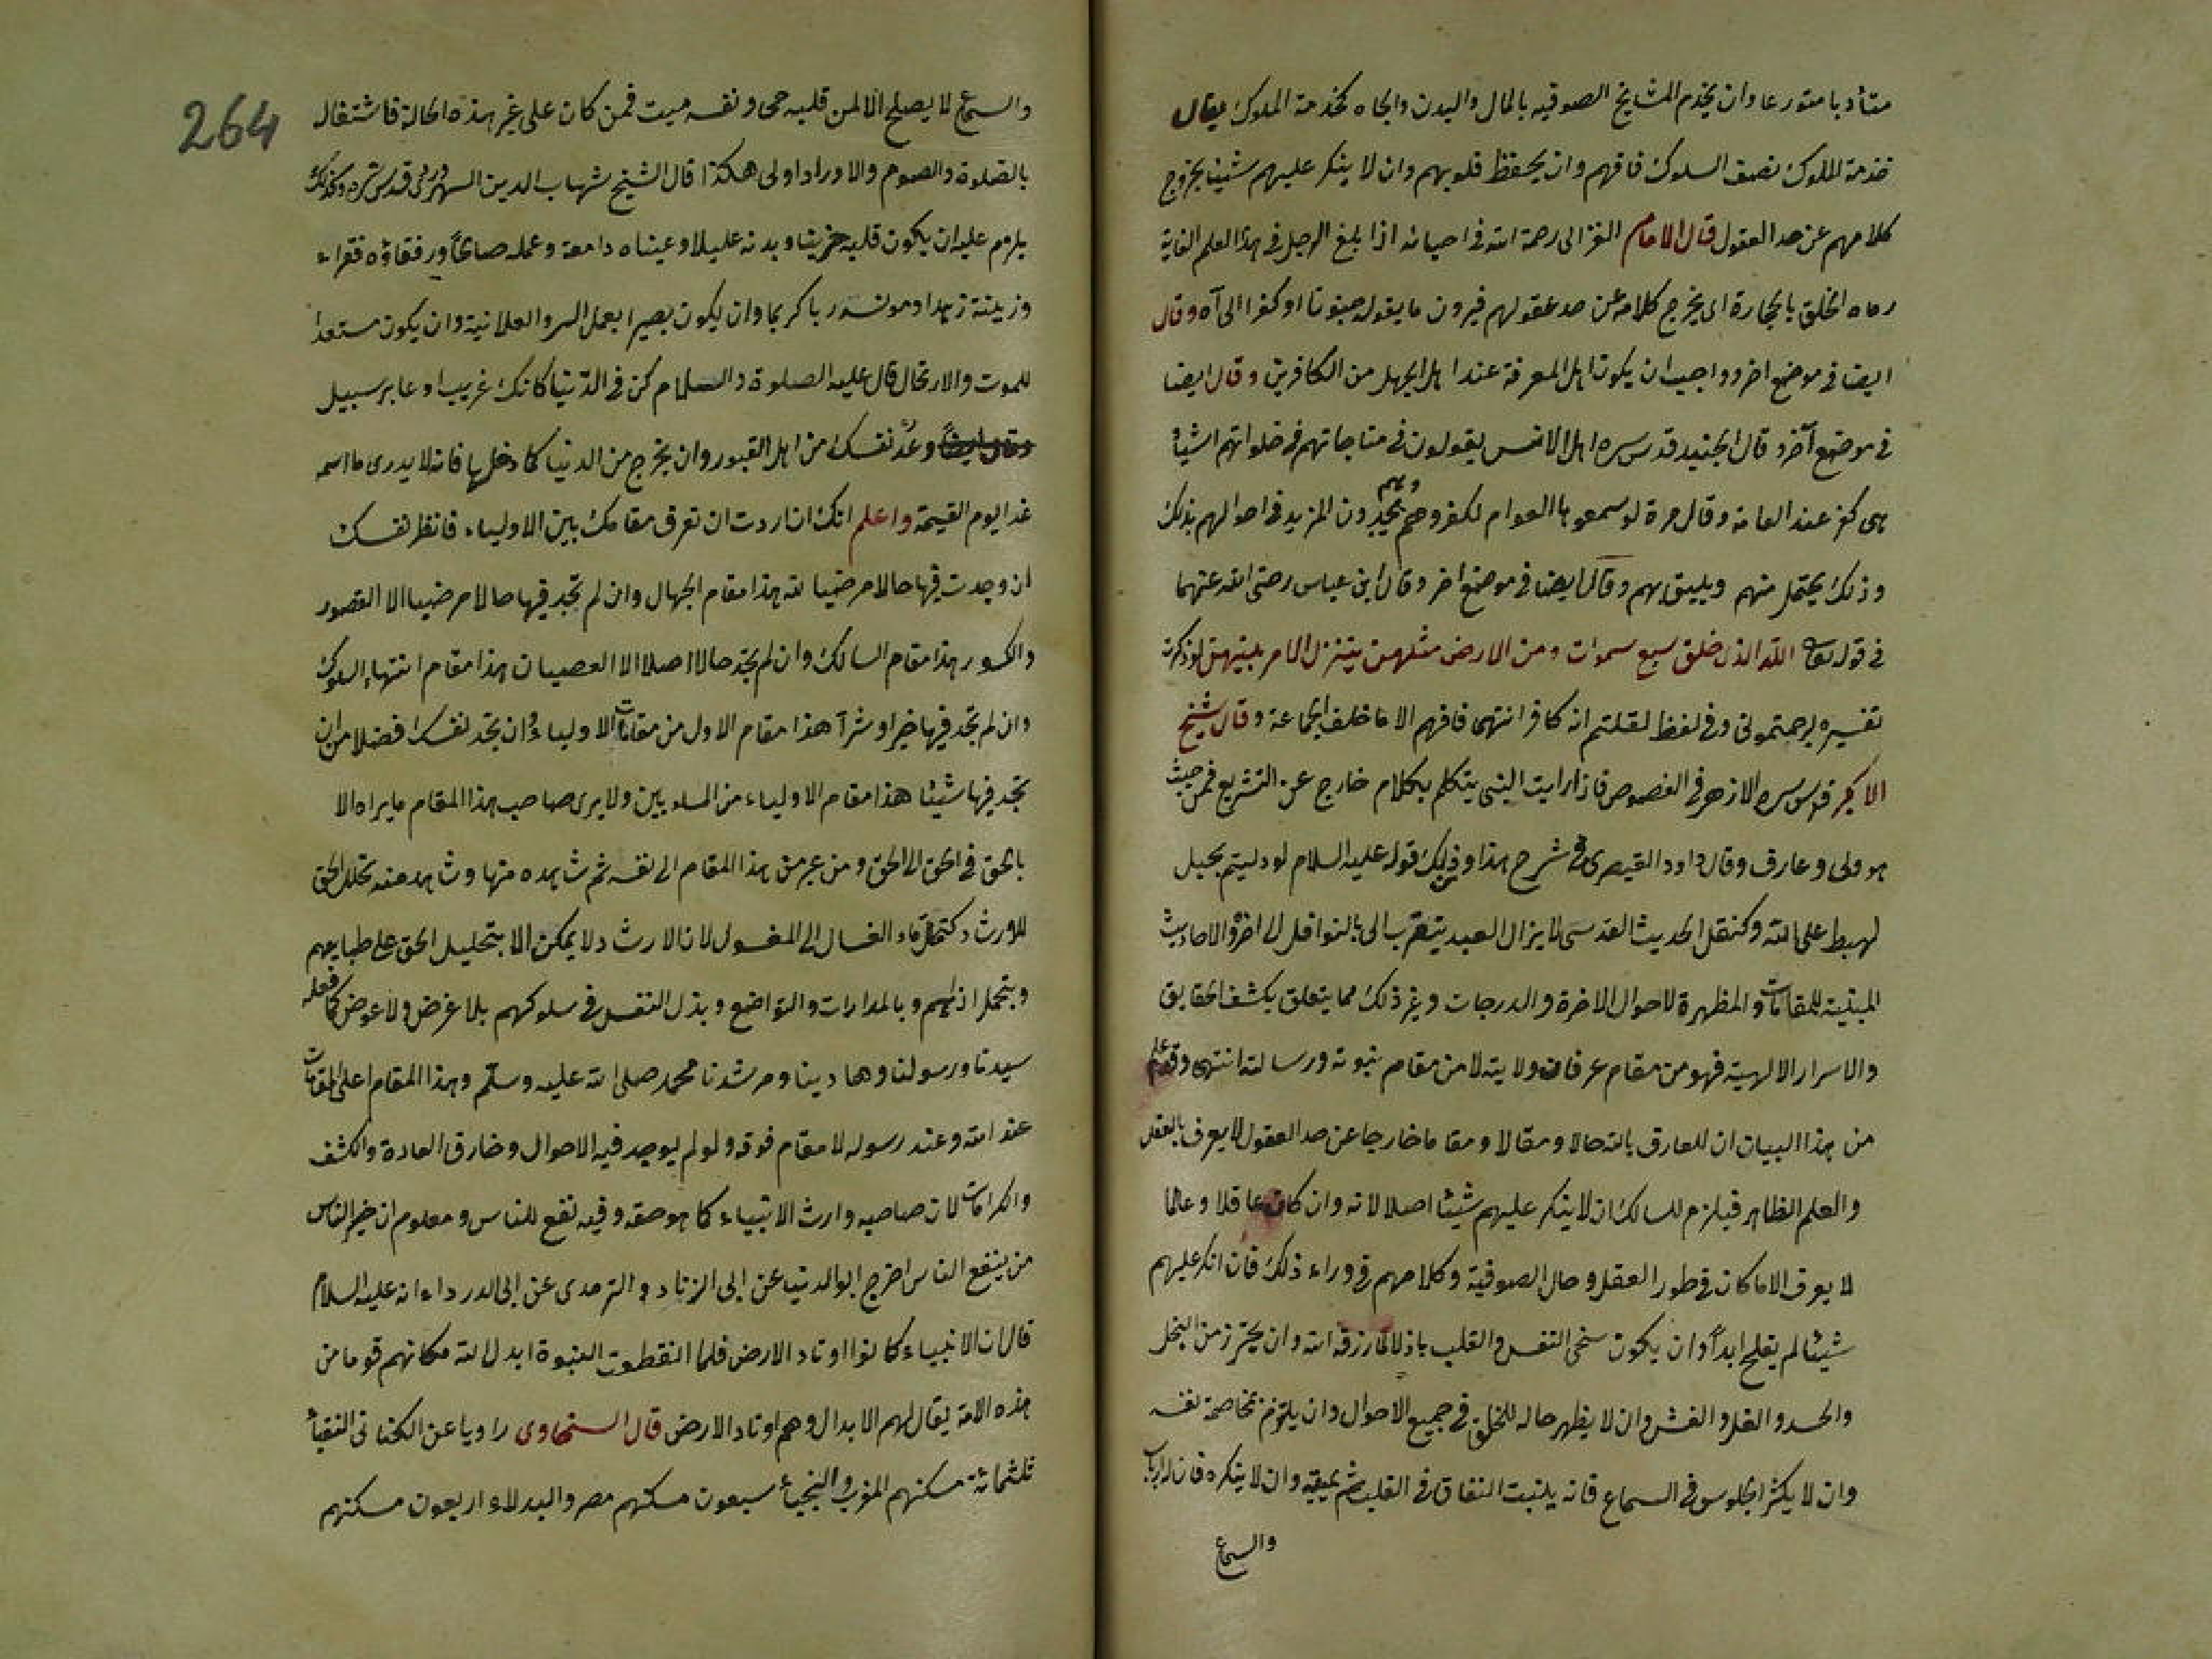 متأدبا متورعا وان يخدم المشايخ الصوفيه بالمال والبدن والجاه كخدمة الملوك يقال
خدمة الملوك نصف السلوك فافهم وان يحفظ قلوبهم وان لا ينكر عليهم شيئا يخرج
كلامهم عن حد العقول قال الامام الغزالى رحمة الله فى احيائه اذا بلغ الرجل فى هذا العلم الغاية
رماه الخلق بالحجارة اى يخرج كلامه عن حد عقولهم فيرون ما يقوله جنونا او كفرا الى آه وقال
ايضا فى موضع اخر وواجب ان يكون اهل المعرفة عند اهل الجهل من الكافرين وقال ايضا
فى موضع آخر وقال الجنيد قدس سره اهل الانس يقولون فى مناجاتهم فى خلواتهم اشياء
هى كفر عند العامة وقال مرة لو سمعوها العوام لكفروهم وهم يجدون المزيد فى احوالهم بذلك
وذلك يحتمل منهم ويليق بهم وقال ايضا فى موضع اخر وقال ابن عباس رضى الله عنهما
فى قوله تعالى الله الذى خلق سبع سموات ومن الارض مثلهن يتنزل الامر بينهن لو ذكرت
تفسيره لرجمتمونى وفى لفظ لقلتم انه كافر انتهى فافهم الا ما خلف الجماعة وقال شيخ
الاكبر قدس سره الازهر فى الفصوص فاذا رايت النبى يتكلم بكلام خارج عن التشريع فمن حيث
هو ولى وعارف وقال داود القيصرى فى شرح هذا وذلك قوله عليه السلام لو دليتم بحبل
لهبط على الله وكنقل الحديث القدسى لا يزال العبد يتقرب الى بالنوافل الى اخره والاحاديث
المبينة للمقامات والمظهرة لاحوال الاخرة والدرجات وغير ذلك مما يتعلق بكشف الحقايق
والاسرار الالهية فهو من مقام عرفانه وولايته لا من مقام نبوته ورسالته انتهى وقد علم
من هذا البيان ان للعارف بالله حالا ومقالا ومقاما خارجا عن حد العقول لا يعرف بالعقل
والعلم الظاهر فيلزم للسالك ان لا ينكر عليهم شيئا اصلا لانه وان كان عاقلا وعالما
لا يعرف الا ما كان فى طور العقل وحال الصوفية وكلامهم فى وراء ذلك فان انكر عليهم
شيئا لم يفلح ابدا وان يكون سخى النفس والقلب باذلا لما رزقه الله وان يحترز من البخل
والحسد والغل والغش وان لا يظهر حاله للخلق فى جميع الاحوال وان يلتزم مخاصمة نفسه
وان لا يكثر الجلوس فى السماع فانه ينبت النفاق فى القلب ثم يميته وان لا ينكره فان له ارباب
والسماع
264
والسماع لا يصلح الا لمن قلبه حى ونفسه ميت فمن كان على غير هذه الحالة فاشتغال
بالصلوة والصوم والاوراد اولى هكذا قال الشيخ شهاب الدين السهروردى قدس سره وكذلك
يلزم عليه ان يكون قلبه حزينا وبدنه عليلا وعيناه دامعة وعمله صالحا ورفقاؤه فقراء
وزينته زهدا ومونسه ربا كريما وان يكون بصيرا بعمل السر والعلانية وان يكون مستعدا
للموت والارتحال قال عليه الصلوة والسلام كن فى الدنيا كانك غريب او عابر سبيل
وقال ايضا وعد نفسك من اهل القبور وان يخرج من الدنيا كما دخلها فانه لا يدرى ما اسمه
غدا يوم القيمة واعلم انك ان اردت ان تعرف مقامك بين الاولياء فانظر نفسك
ان وجدت فيها حالا مرضيا لله هذا مقام الجهال وان لم تجد فيها حالا مرضيا الا القصور
والكسور هذا مقام السالك وان لم يجد حالا اصلا الا العصيان هذا مقام انتهاء السلوك
وان لم تجد فيها خيرا وشرا هذا مقام الاول من مقامات الاولياء وان تجد نفسك فضلا من ان
تجد فيها شيئا هذا مقام الاولياء من المسلوبين ولا يرى صاحب هذا المقام ما يراه الا
بالحق فى الحق الى الحق ومن عبر من هذا المقام الى نفسه ثم شاهده منها وشاهد منه تحلل الحق
للارشاد كتحلل ماء الغسال الى المغسول لان الارشاد لا يمكن الا بتحليل الحق على طبايعهم
وبتحمل اذاهم وبالمدارات والتواضع وبذل النفس فى سلوكهم بلا غرض ولا عوض كما فعله
سيدنا ورسولنا وهادينا ومرشدنا محمد صلى الله عليه وسلم وهذا المقام اعلى المقامات
عند الله وعند رسوله لا مقام فوقه ولو لم يوجد فيه الاحوال وخارق العادة والكشف
والكرامات لان صاحبه وارث الانبياء كما هو حقه وفيه نفع للناس ومعلوم ان خير الناس
من ينفع الناس اخرج ابو الدنيا عن ابى الزناد والترمدى عن ابى الدرداء انه عليه السلام
قال ان الانبياء كانوا اوتاد الارض فلما انقطعت النبوة ابدل الله مكانهم قوما من
هذه الامة يقال لهم الابدال وهم اوتاد الارض قال السخاوى راويا عن الكتانى النقباء
ثلثمائة مسكنهم المغرب والنجباء سبعون مسكنهم مصر والبدلاء اربعون مسكنهم